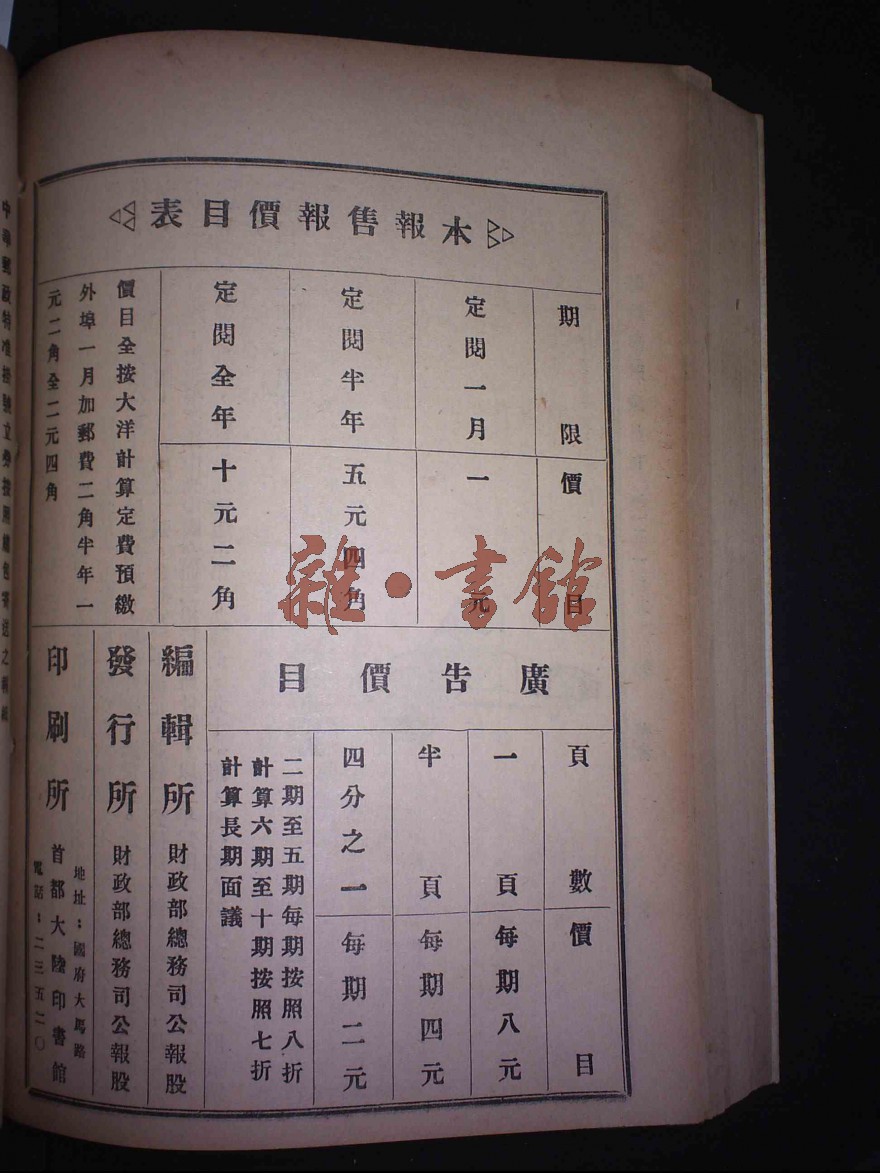 本報售報價目表
期限
價目
定閱一月
一元
定閱半年
五元四角
定閱全年
十元二角
價目全按大洋計算定費預繳
外埠一月加郵費二角半年一
元二角全二元四角
廣告價目
頁數
價目
一頁
每期八元
半頁
每期四元
四分之一
每期二元
二期至五期每期按照八折
計算六期至十期按照七折
計算長期面議
編輯所 財政部總務司公報股
發行所 財政部總務司公報股
印刷所 首都大陸印書館
地址：國府大馬路
電話：二三五二〇
中華郵政特准掛號立券按照總包寄送之
雜·書館